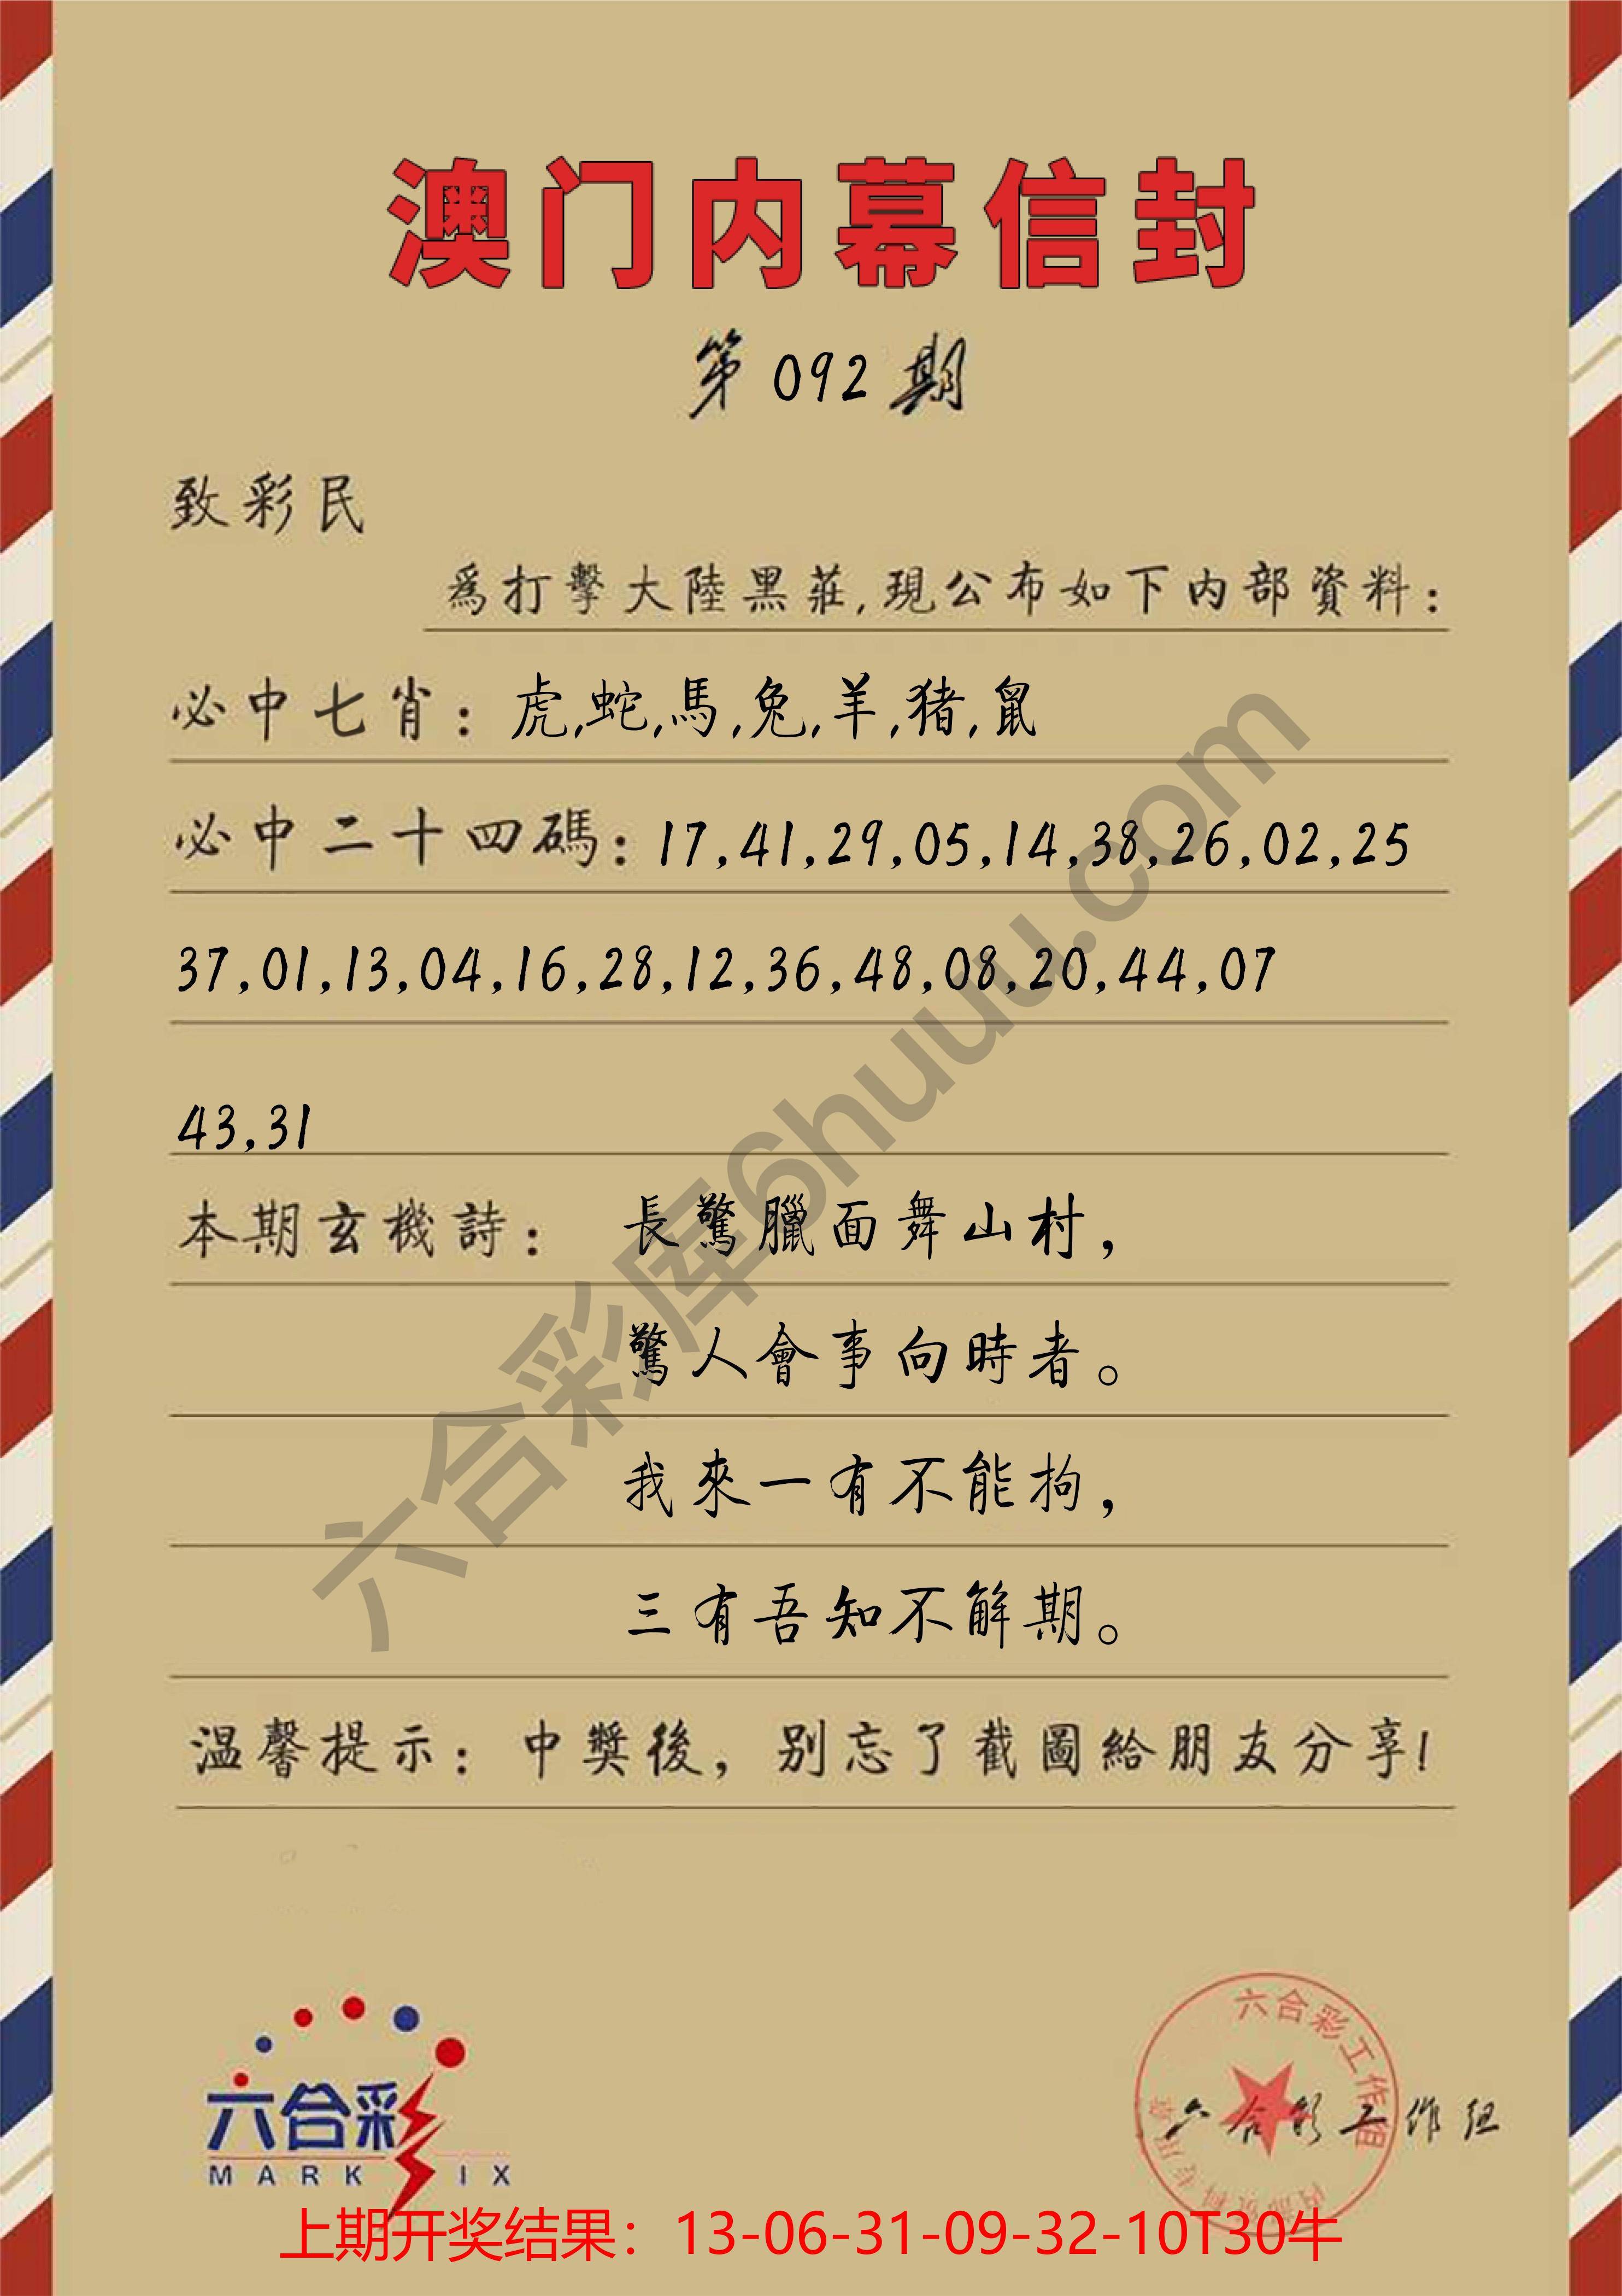 澳门内幕信封
第092期
致彩民
爲打擊大陸黑莊,現公布如下内部資料:
必中七肖: 虎,蛇,馬,兔,羊,猪,鼠
必中二十四碼: 17,41,29,05,14,38,26,02,25
37,01,13,04,16,28,12,36,48,08,20,44,07
43,31
本期玄機詩: 長驚臘面舞山村,
驚人會事向時者。
我來一有不能拘,
三有吾知不解期。
温馨提示: 中獎後, 别忘了截圖給朋友分享!
六合彩库6huuu.com
六合彩
MARK SIX
六合彩工作组
六合彩工作组
上期开奖结果：13-06-31-09-32-10T30牛